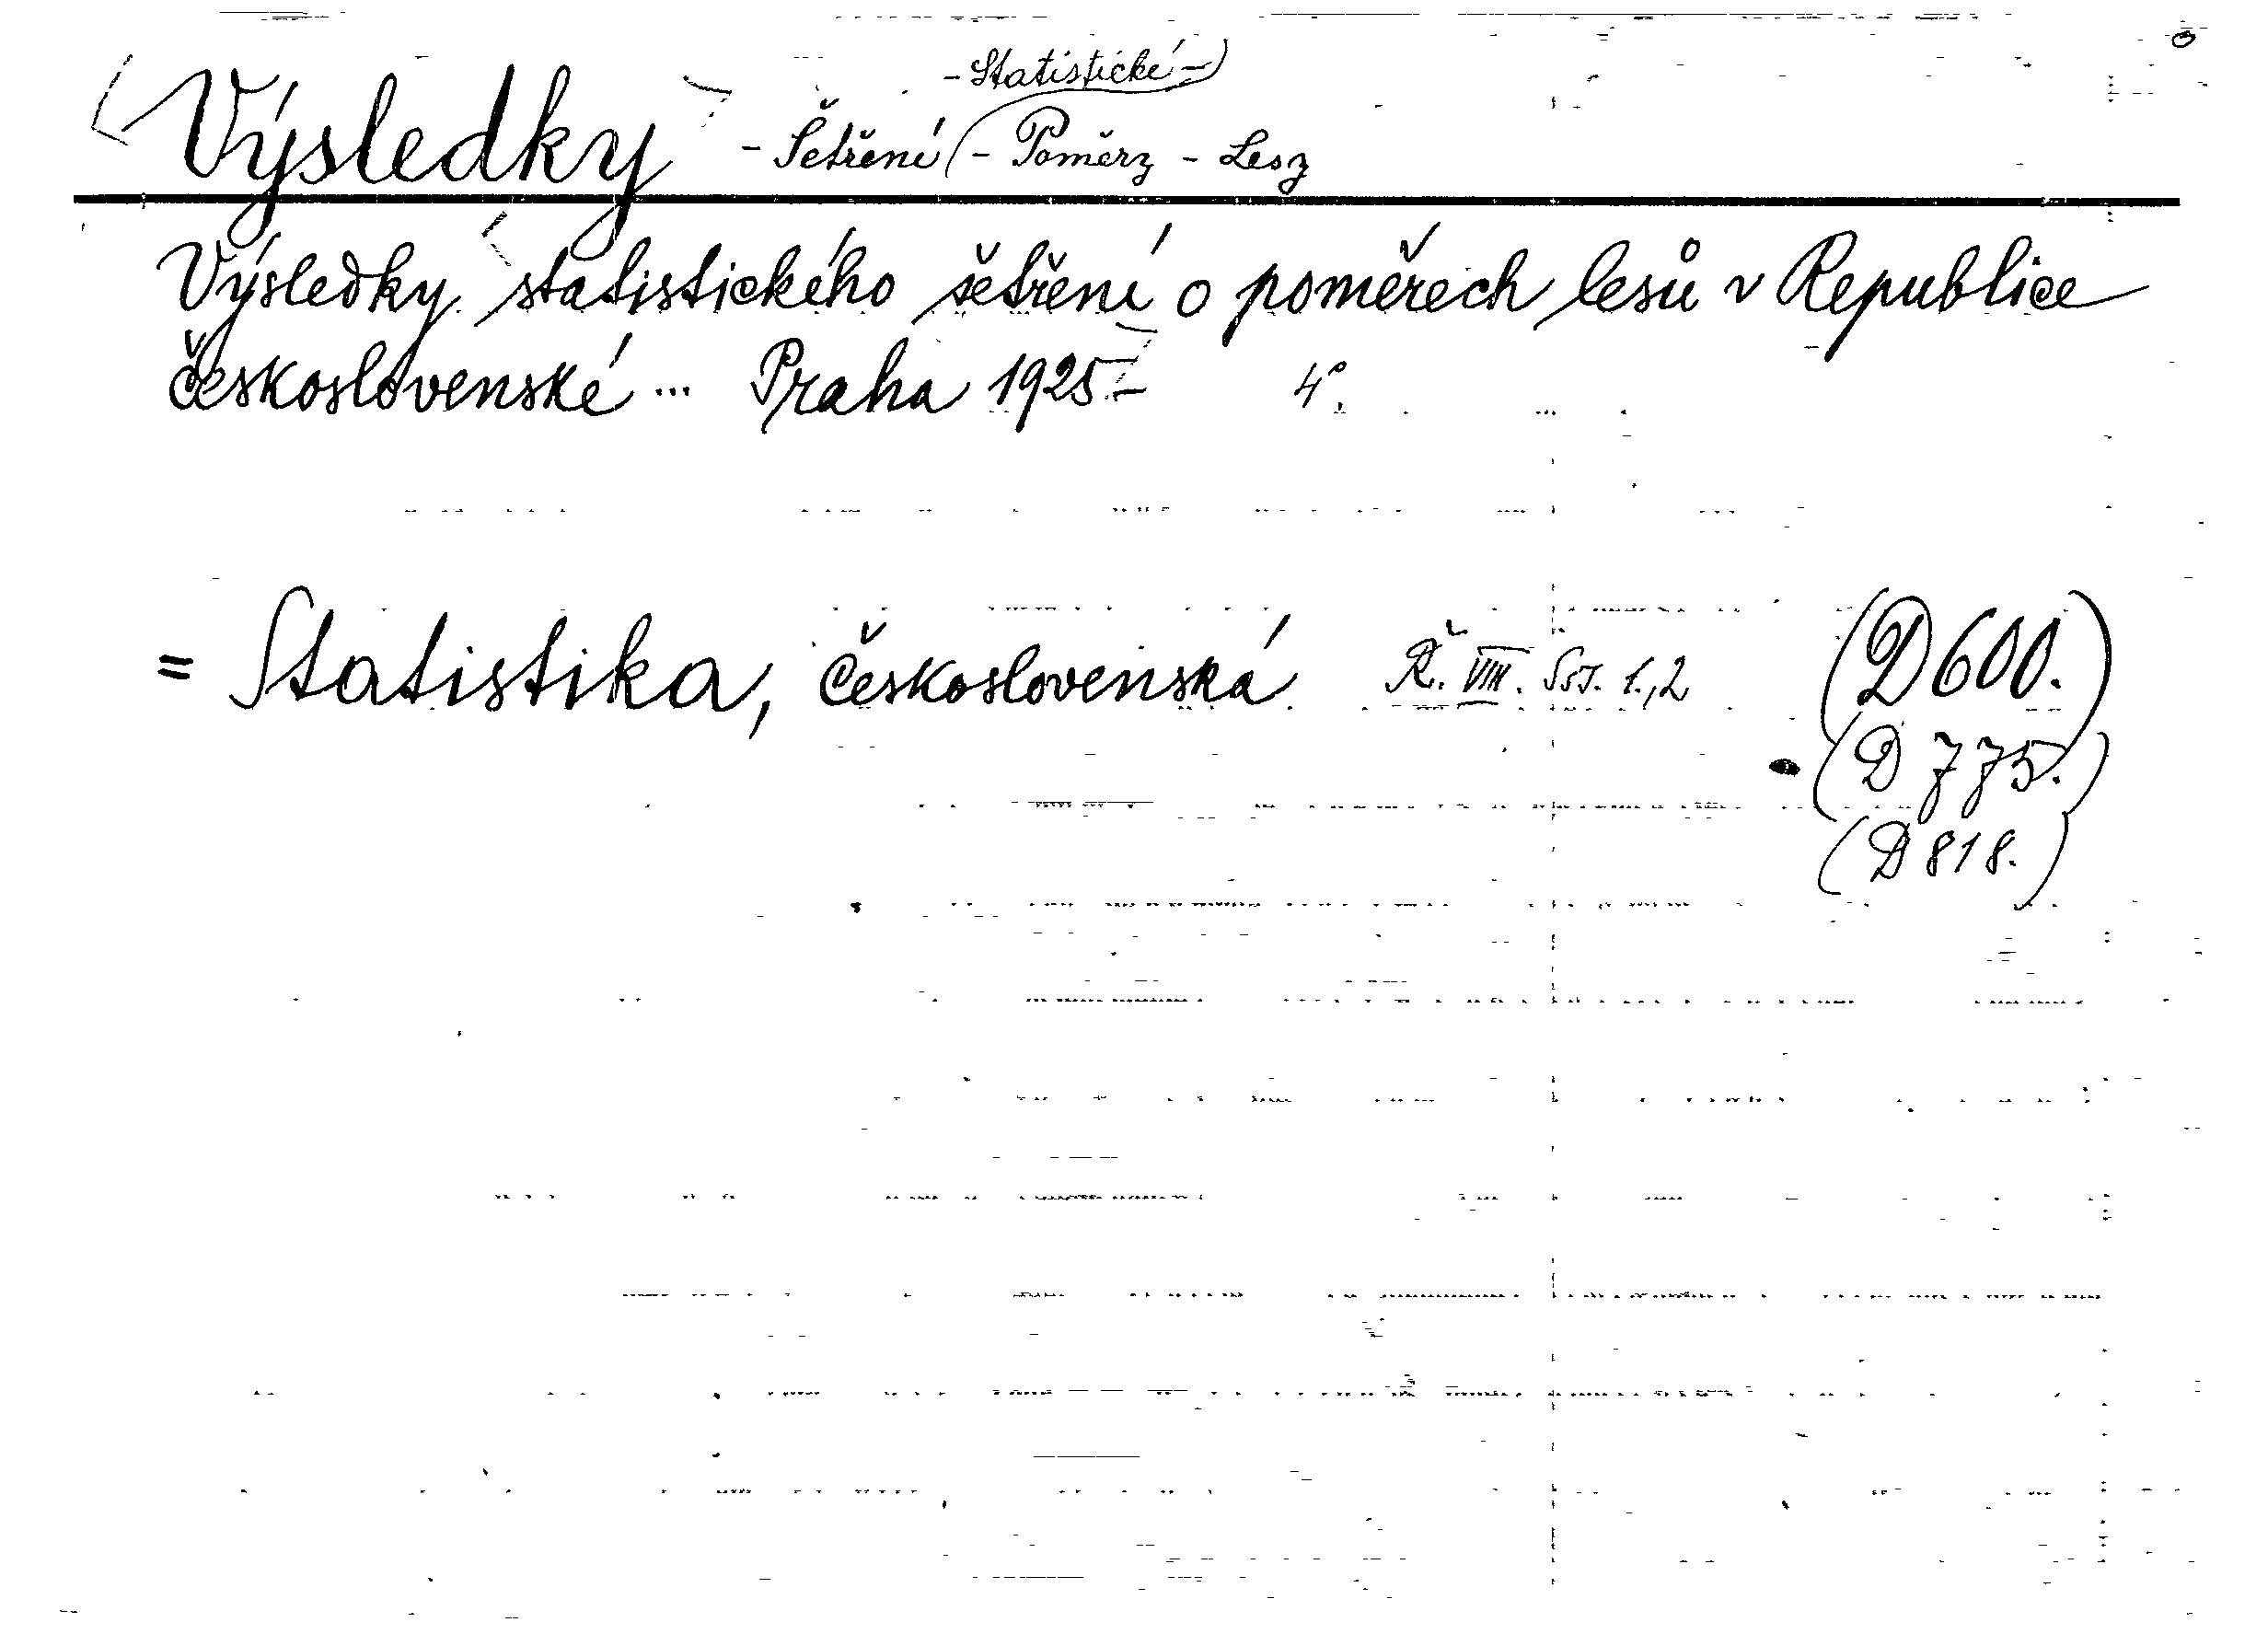 - Statistické -
Výsledky - Šetření - Poměry - Lesy
Výsledky statistického šetření o poměrech lesů v Republice
československé ... Praha 1925 - 4°.
= Statistika, Československá Ř. VIII. 1., 2 (D 600.)
(D 775.)
(D 818.)